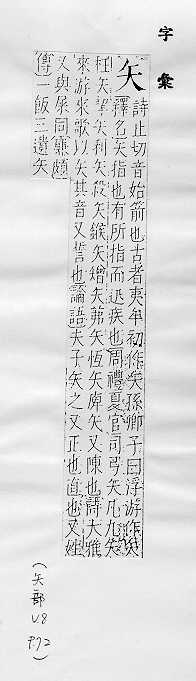 字彙
矢
詩止切音始箭也古者夷牟初作矢孫卿子曰浮游作矢
釋名矢指也有所指而迅疾也周禮夏官司弓矢凡九矢
枉矢挈矢利矢殺矢鍭矢矰矢茀矢恆矢庳矢又陳也詩大雅
來游來歌以矢其音又誓也論語夫子矢之又正也直也又姓
又與屎同廉頗
傳一飯三遺矢
(矢部